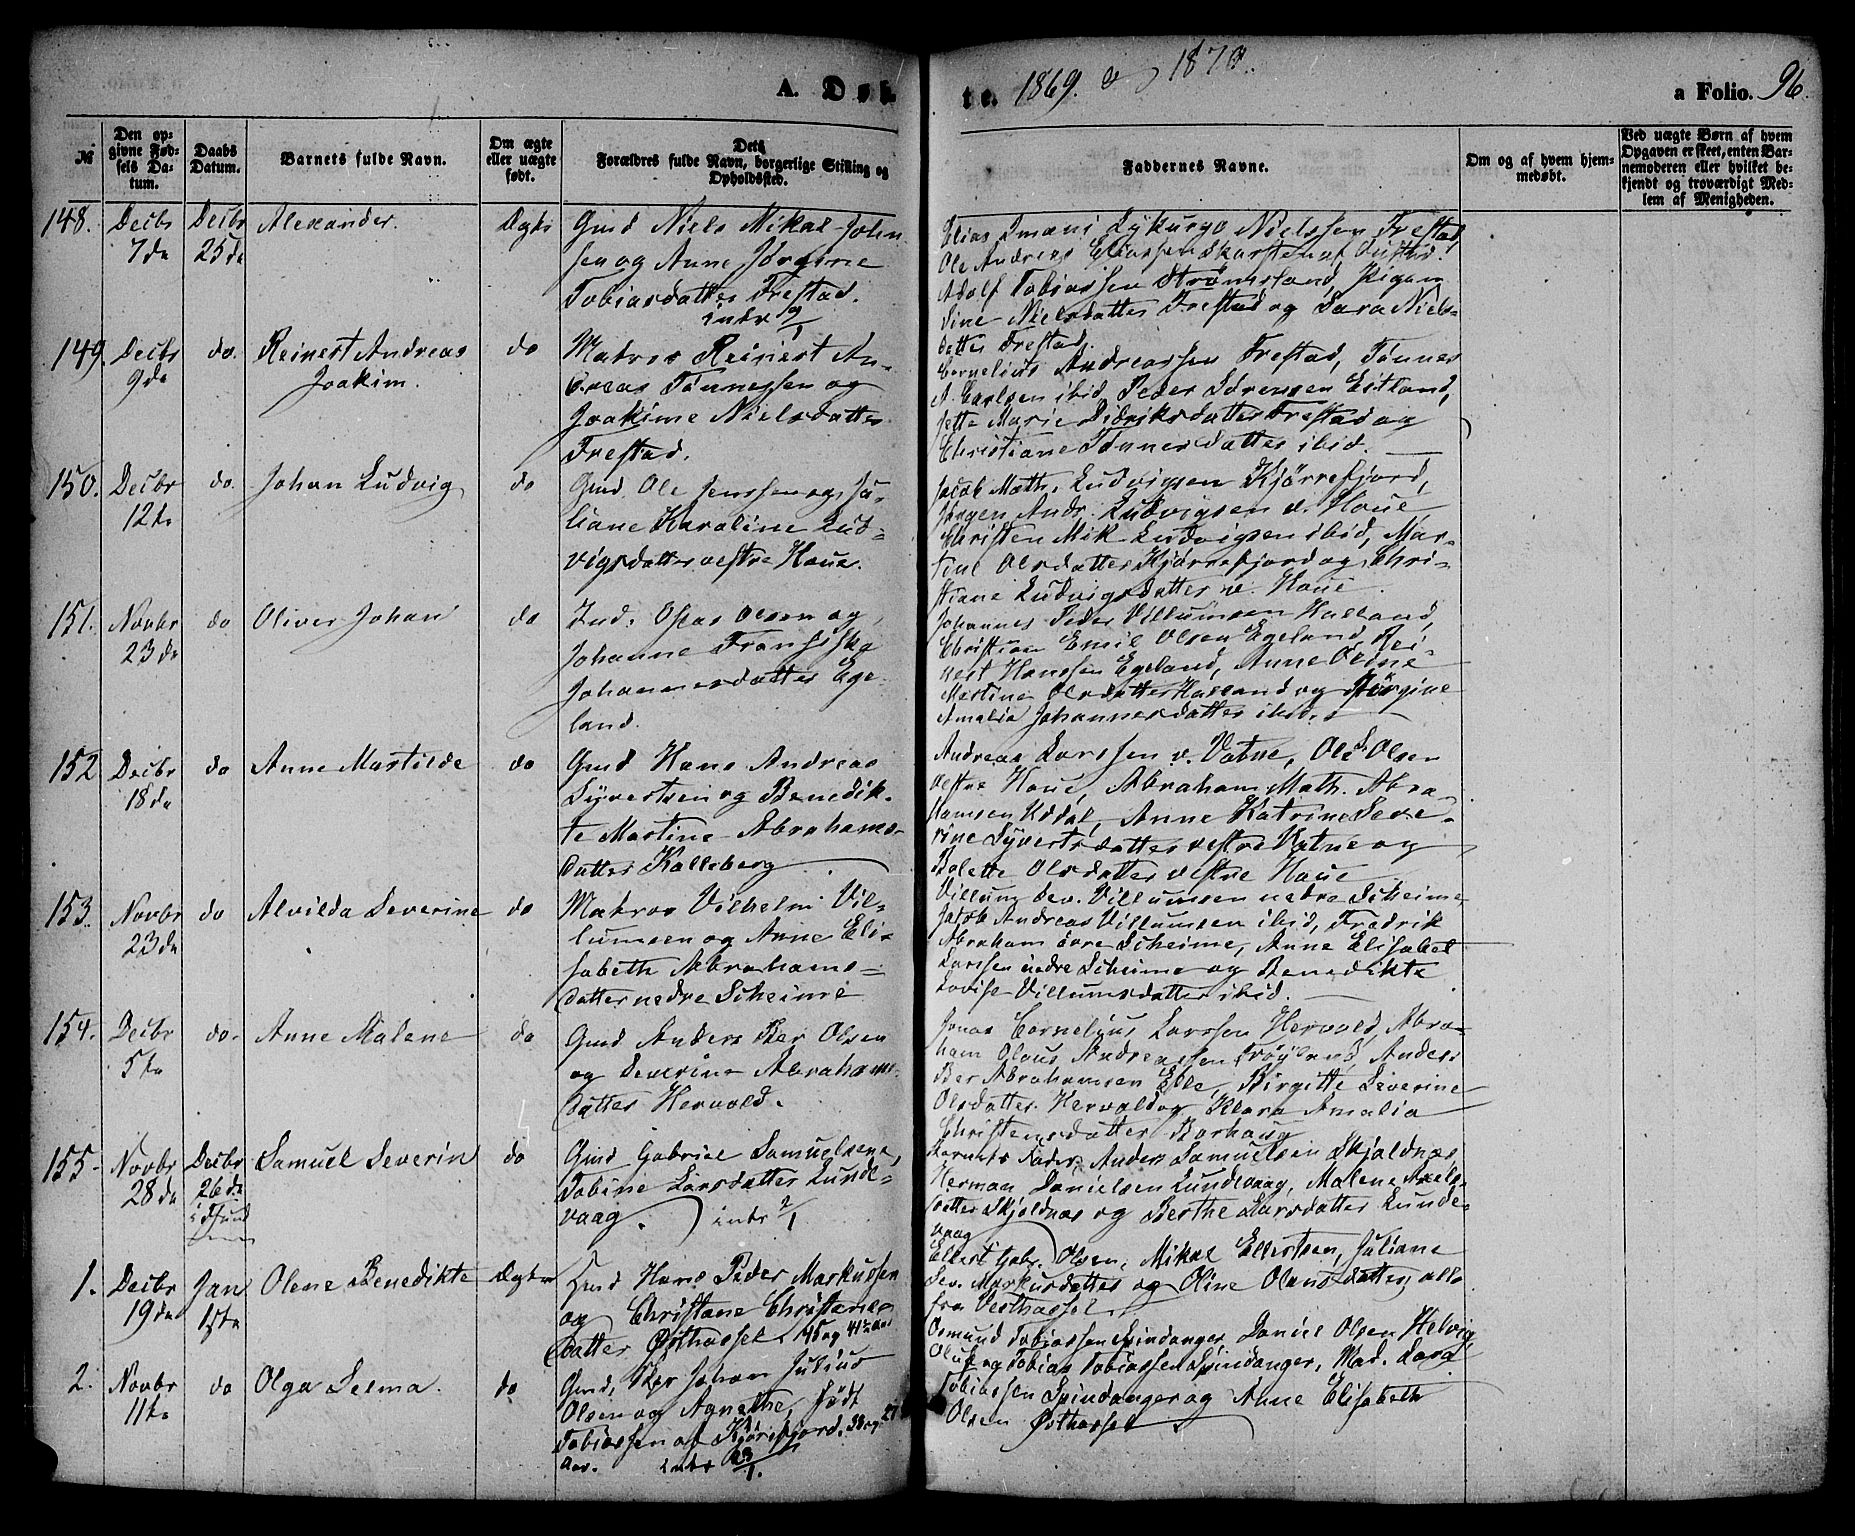 A. Døb-
te. 1869. & 1870.
a Folio. 96.
№
Den op-
givne Fød-
sels Da-
tum.
Daabs
Datum.
Barnets fulde Navn.
Om ægte
eller uægte
født.
Dets
Forældres fulde Navn, borgerlige Stilling og
Opholdssted.
Faddernes Navne.
Om og af hvem hjem-
medøbt.
Ved uægte Børn af hvem
Opgaven er skeet, enten Bar-
nemoderen eller hvilket be-
kjendt og troværdigt Med-
lem af Menigheden.
148. Decbr 7de
Decbr 25de
Alexander.
Ægte
Gmd Niels Mikal John-
sen og Anne Jørgine
Tobiasdatter Frestad.
intr 9/1
Elias Imani Lykurgo Nielssen Frestad,
Ole Andreas Eliassen
Adolf Tobiassen Strømsland, Pigen
Sine Nielsdatter Frestad og Sara Niels-
datter Frestad.
149. Decbr 9de
do.
Reinert Andreas
Joakim.
do
Matros Reinert An-
dreas Tønnessen og
Joakime Nielsdatter
Frestad.
Cornelius Andreassen Frestad, Tønnes
A. Carlsen ibid, Peder Sørensen Eitland,
Jette Marie Didriksdatter Frestad og
Christiane Tønnesdatter ibid.
150. Decbr 12te
do.
Johan Ludvig
do
Gmd Ole Jenssen og Ju-
liane Karoline Lud-
vigsdatter vestre Haue.
Jacob Math. Ludvigsen Kjørrefjord,
Jørgen Andr. Ludvigsen v. Haue
Christen Mik. Ludvigsen ibid, Mar-
tine Olsdatter Kjørrefjord og Chri-
stiane Ludvigsdatter v. Haue.
151. Novbr 23de
do
Oliver Johan
do
Ind. Osas Olsen og
Johanne Fransiska
Johannesdatter Ege-
land.
Johannes Peder Villumsen Halland,
Christian Emil Olsen Egeland, Rei-
nert Hanssen Egeland, Anne Oline
Martine Olsdatter Halland og Jørgine
Amalia Johannesdatter ibid.
152 Decbr 18de
do
Anne Mastilde
do
Gmd Hans Andreas
Syvertsen og Benedik-
te Martine Abrahams-
datter Kalleberg
Andreas Larssen v. Vatne, Ole S. Olsen
vestre Haue, Abraham Math. Abra-
hamsen Uddal, Anne Katrine Seve-
rine Syvertsdatter vestre Vatne og
Bolette Olsdatter vestre Haue
153. Novbr 23de
do
Alvilda Severine
do
Matros Vilhelm Vil-
lumsen og Anne Eli-
sabeth Abrahams-
datter nedre Scheime
Villum Sev. Villumsen nedre Scheime,
Jakob Andreas Villumsen ibid, Fredrik
Abraham øvre Scheime, Anne Elisabet
Larssen nedre Scheime og Benedikte
Lovise Villumsdatter ibid.
154. Decbr 5te
do.
Anne Malene
do
Gmd Anders Ber Olsen
og Severine Abrahams-
datter Hervold.
Jonas Cornelius Larssen Hervold, Abra-
ham Olaus Andreassen Frøyland, Anders
Ber Abrahamsen Eble, Birgitte Severine
Olsdatter Hervold og Klara Amalia
Christensdatter Borhaug
155. Novbr 28de
Decbr 26de
i Sund
Samuel Severin
do
Gmd Gabriel Samuelsen,
Tobine Larsdatter Lunde-
vaag. intr 2/1
Barnets Fader, Anders Samuelsen Skjoldnes
Herman Danielsen Lundevaag, Malene
datter Skjoldnes og Berthe Larsdatter Lunde-
vaag
1. Decbr 19de
Jan 1ste
Olene Benedikte
Ægte
Gmd Hans Peder Markussen
og Christane Christans-
datter Østhassel. 45 og 41½ Aar
Ellert Gabr. Olsen, Mikal Ellertsen, Juliane
Sev. Markusdatter og Oline Olausdatter, alle
fra Vesthassel.
2. Novbr 11te
do
Olga Selma.
do
Gmd, Skpr Johan Julius
Olsen og Agnethe, født
Tobiassen af Kjørrefjord. 38 og 27
Aar. intr 23/1.
Osmund Tobiassen Spindanger, Daniel Olsen Helvig,
Oluf og Tobias Tobiassen Spindanger, Mad. Sara
Tobiassen Spindanger og Anne Elisabeth
Olsen Østhassel